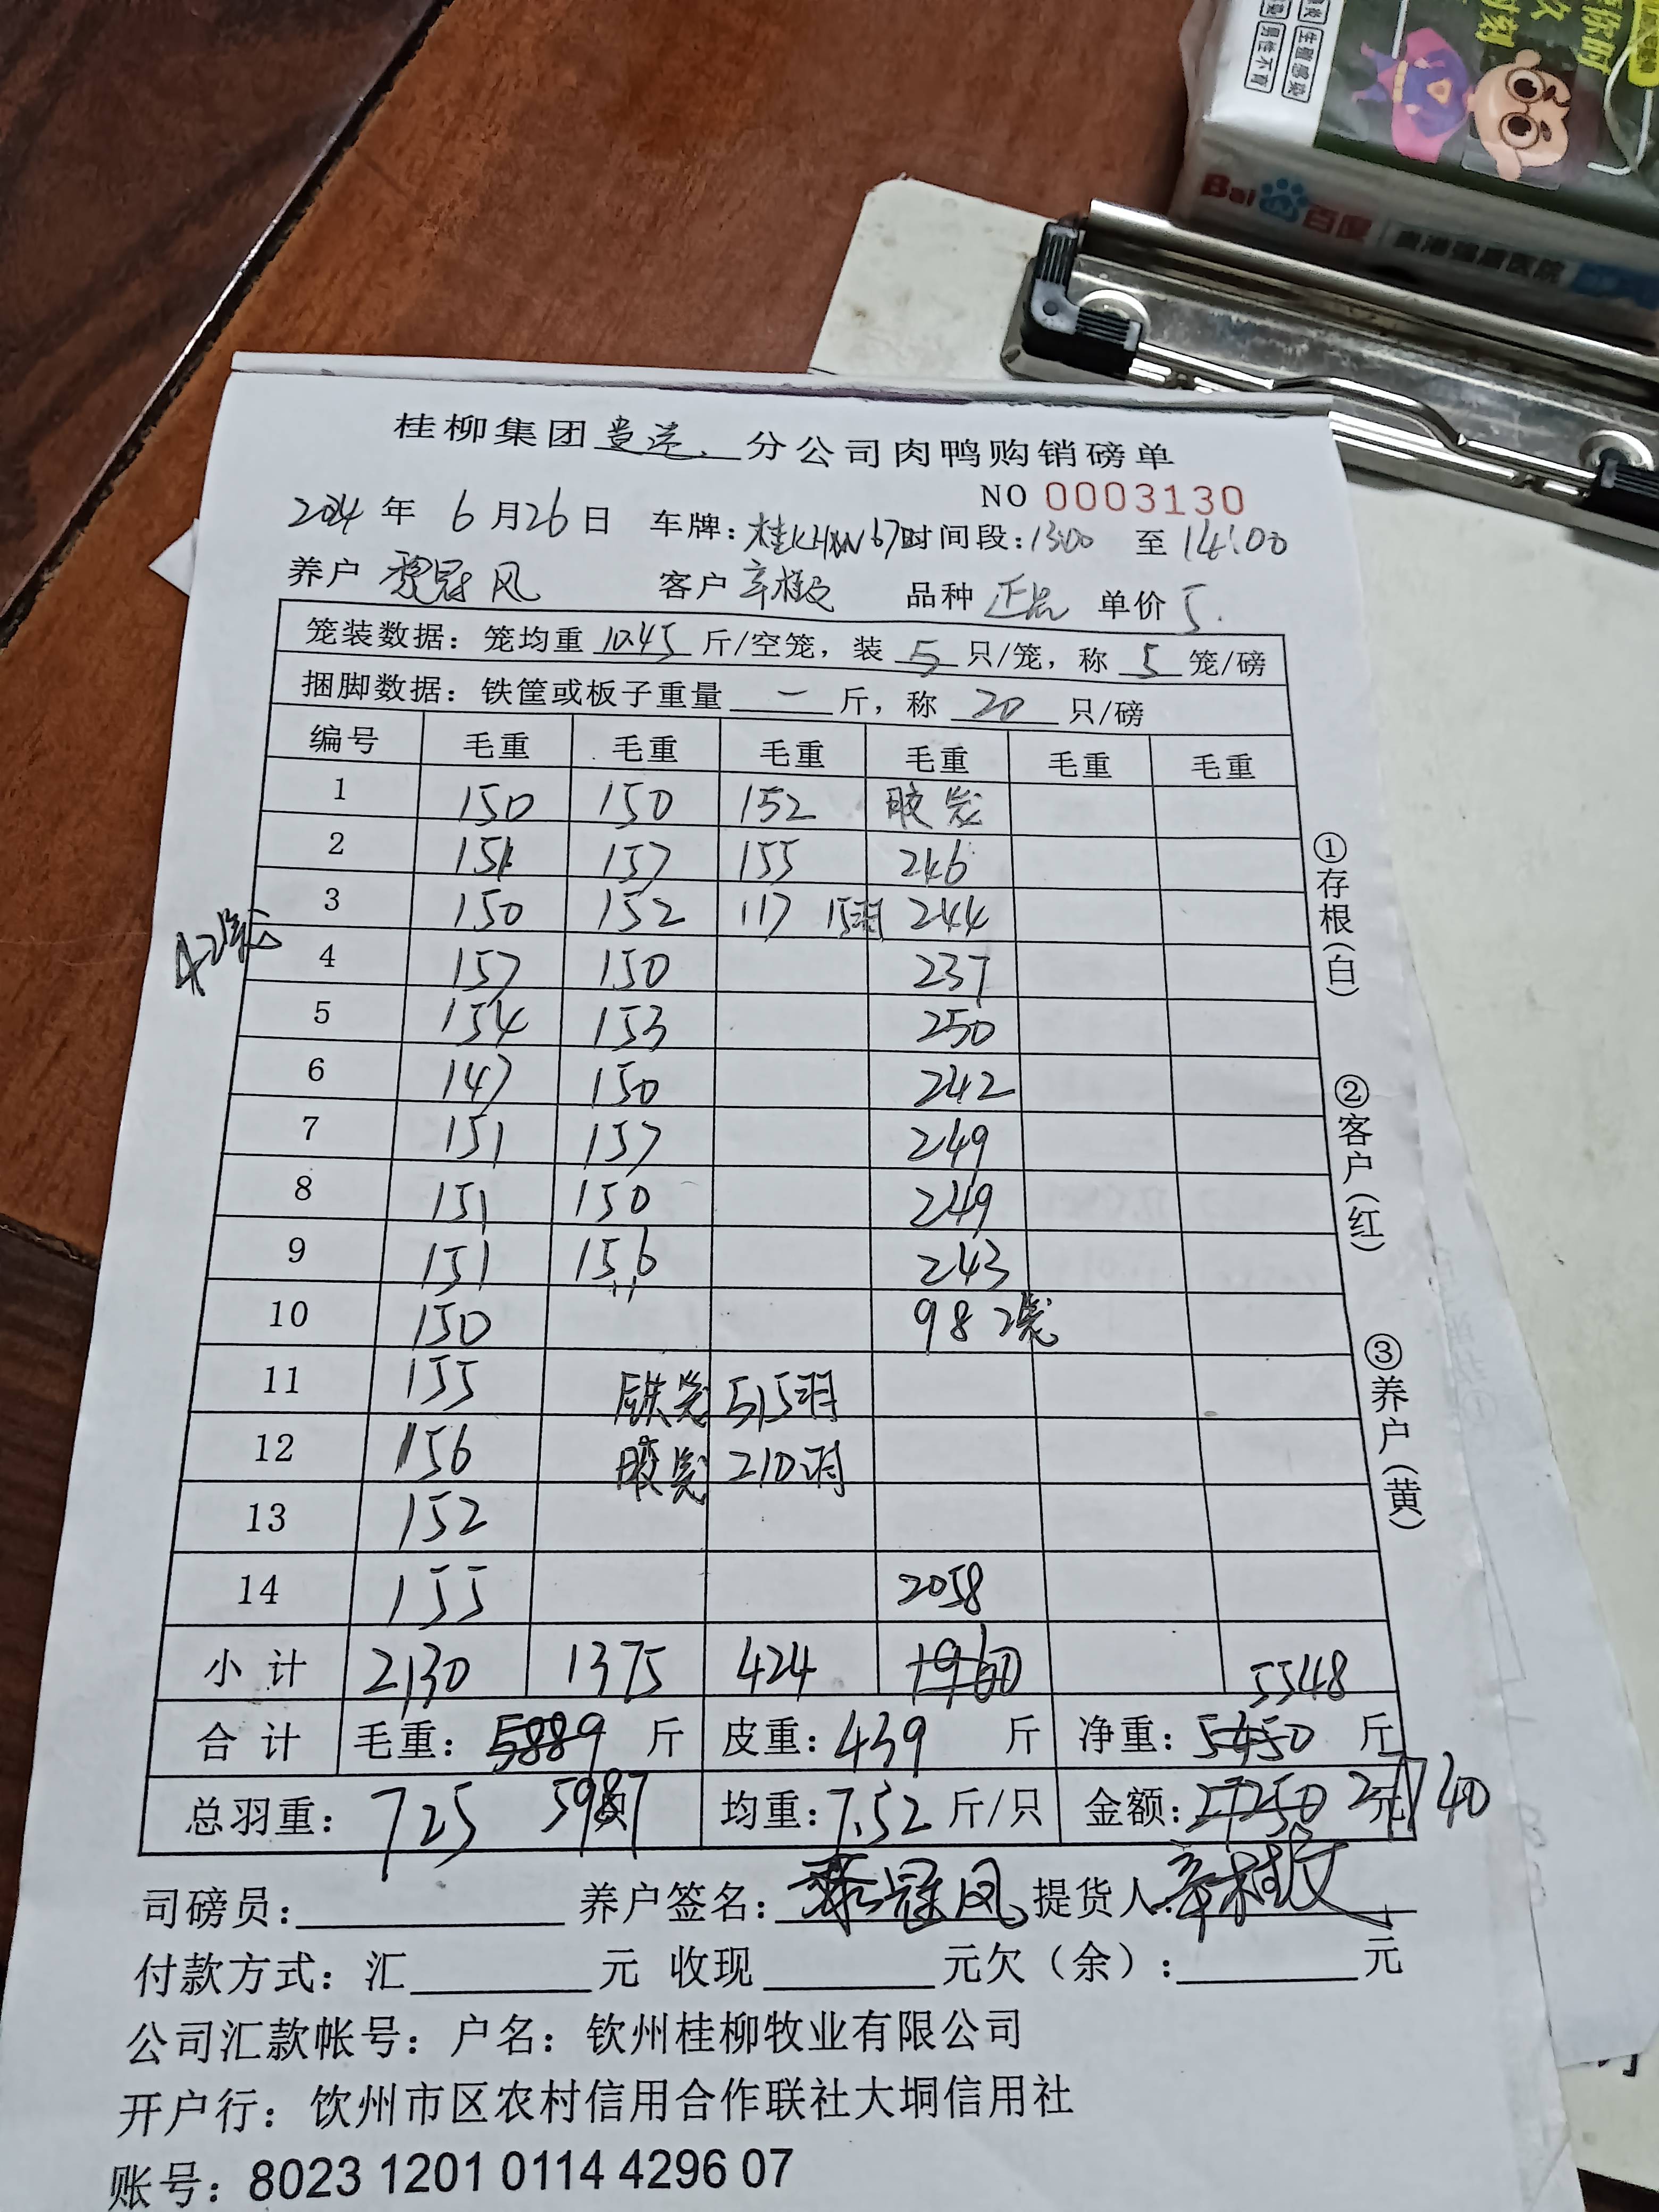 Bai 百度
桂柳集团 分公司肉鸭购销磅单
NO 0003130
2024年 6月26日 车牌: 时间段:13:00 至 14:00
养户 冠凤 客户 品种 正品 单价 5.
笼装数据: 笼均重 10.45 斤/空笼, 装 5 只/笼, 称 5 笼/磅
捆脚数据: 铁筐或板子重量 一 斤, 称 20 只/磅
编号 毛重 毛重 毛重 毛重 毛重 毛重
1 150 150 152 胶笼
2 151 157 155 246
3 150 152 117 15羽 244
4 157 150 237
5 154 153 250
6 147 150 242
7 151 157 249
8 151 150 249
9 151 156 243
10 150 98 2笼
11 155 铁笼 515羽
12 156 胶笼 210羽
13 152
14 155 2058
小计 2130 1375 424 1960 5548
合计 毛重: 5889 斤 皮重: 439 斤 净重: 5450 斤
总羽重: 725 5987 均重: 7.52 斤/只 金额: 27250 27740 元
司磅员: 养户签名: 冠凤 提货人:
付款方式: 汇 元 收现 元欠(余): 元
公司汇款帐号: 户名: 钦州桂柳牧业有限公司
开户行: 饮州市区农村信用合作联社大垌信用社
账号: 8023 1201 0114 4296 07
①存根(白)
②客户(红)
③养户(黄)